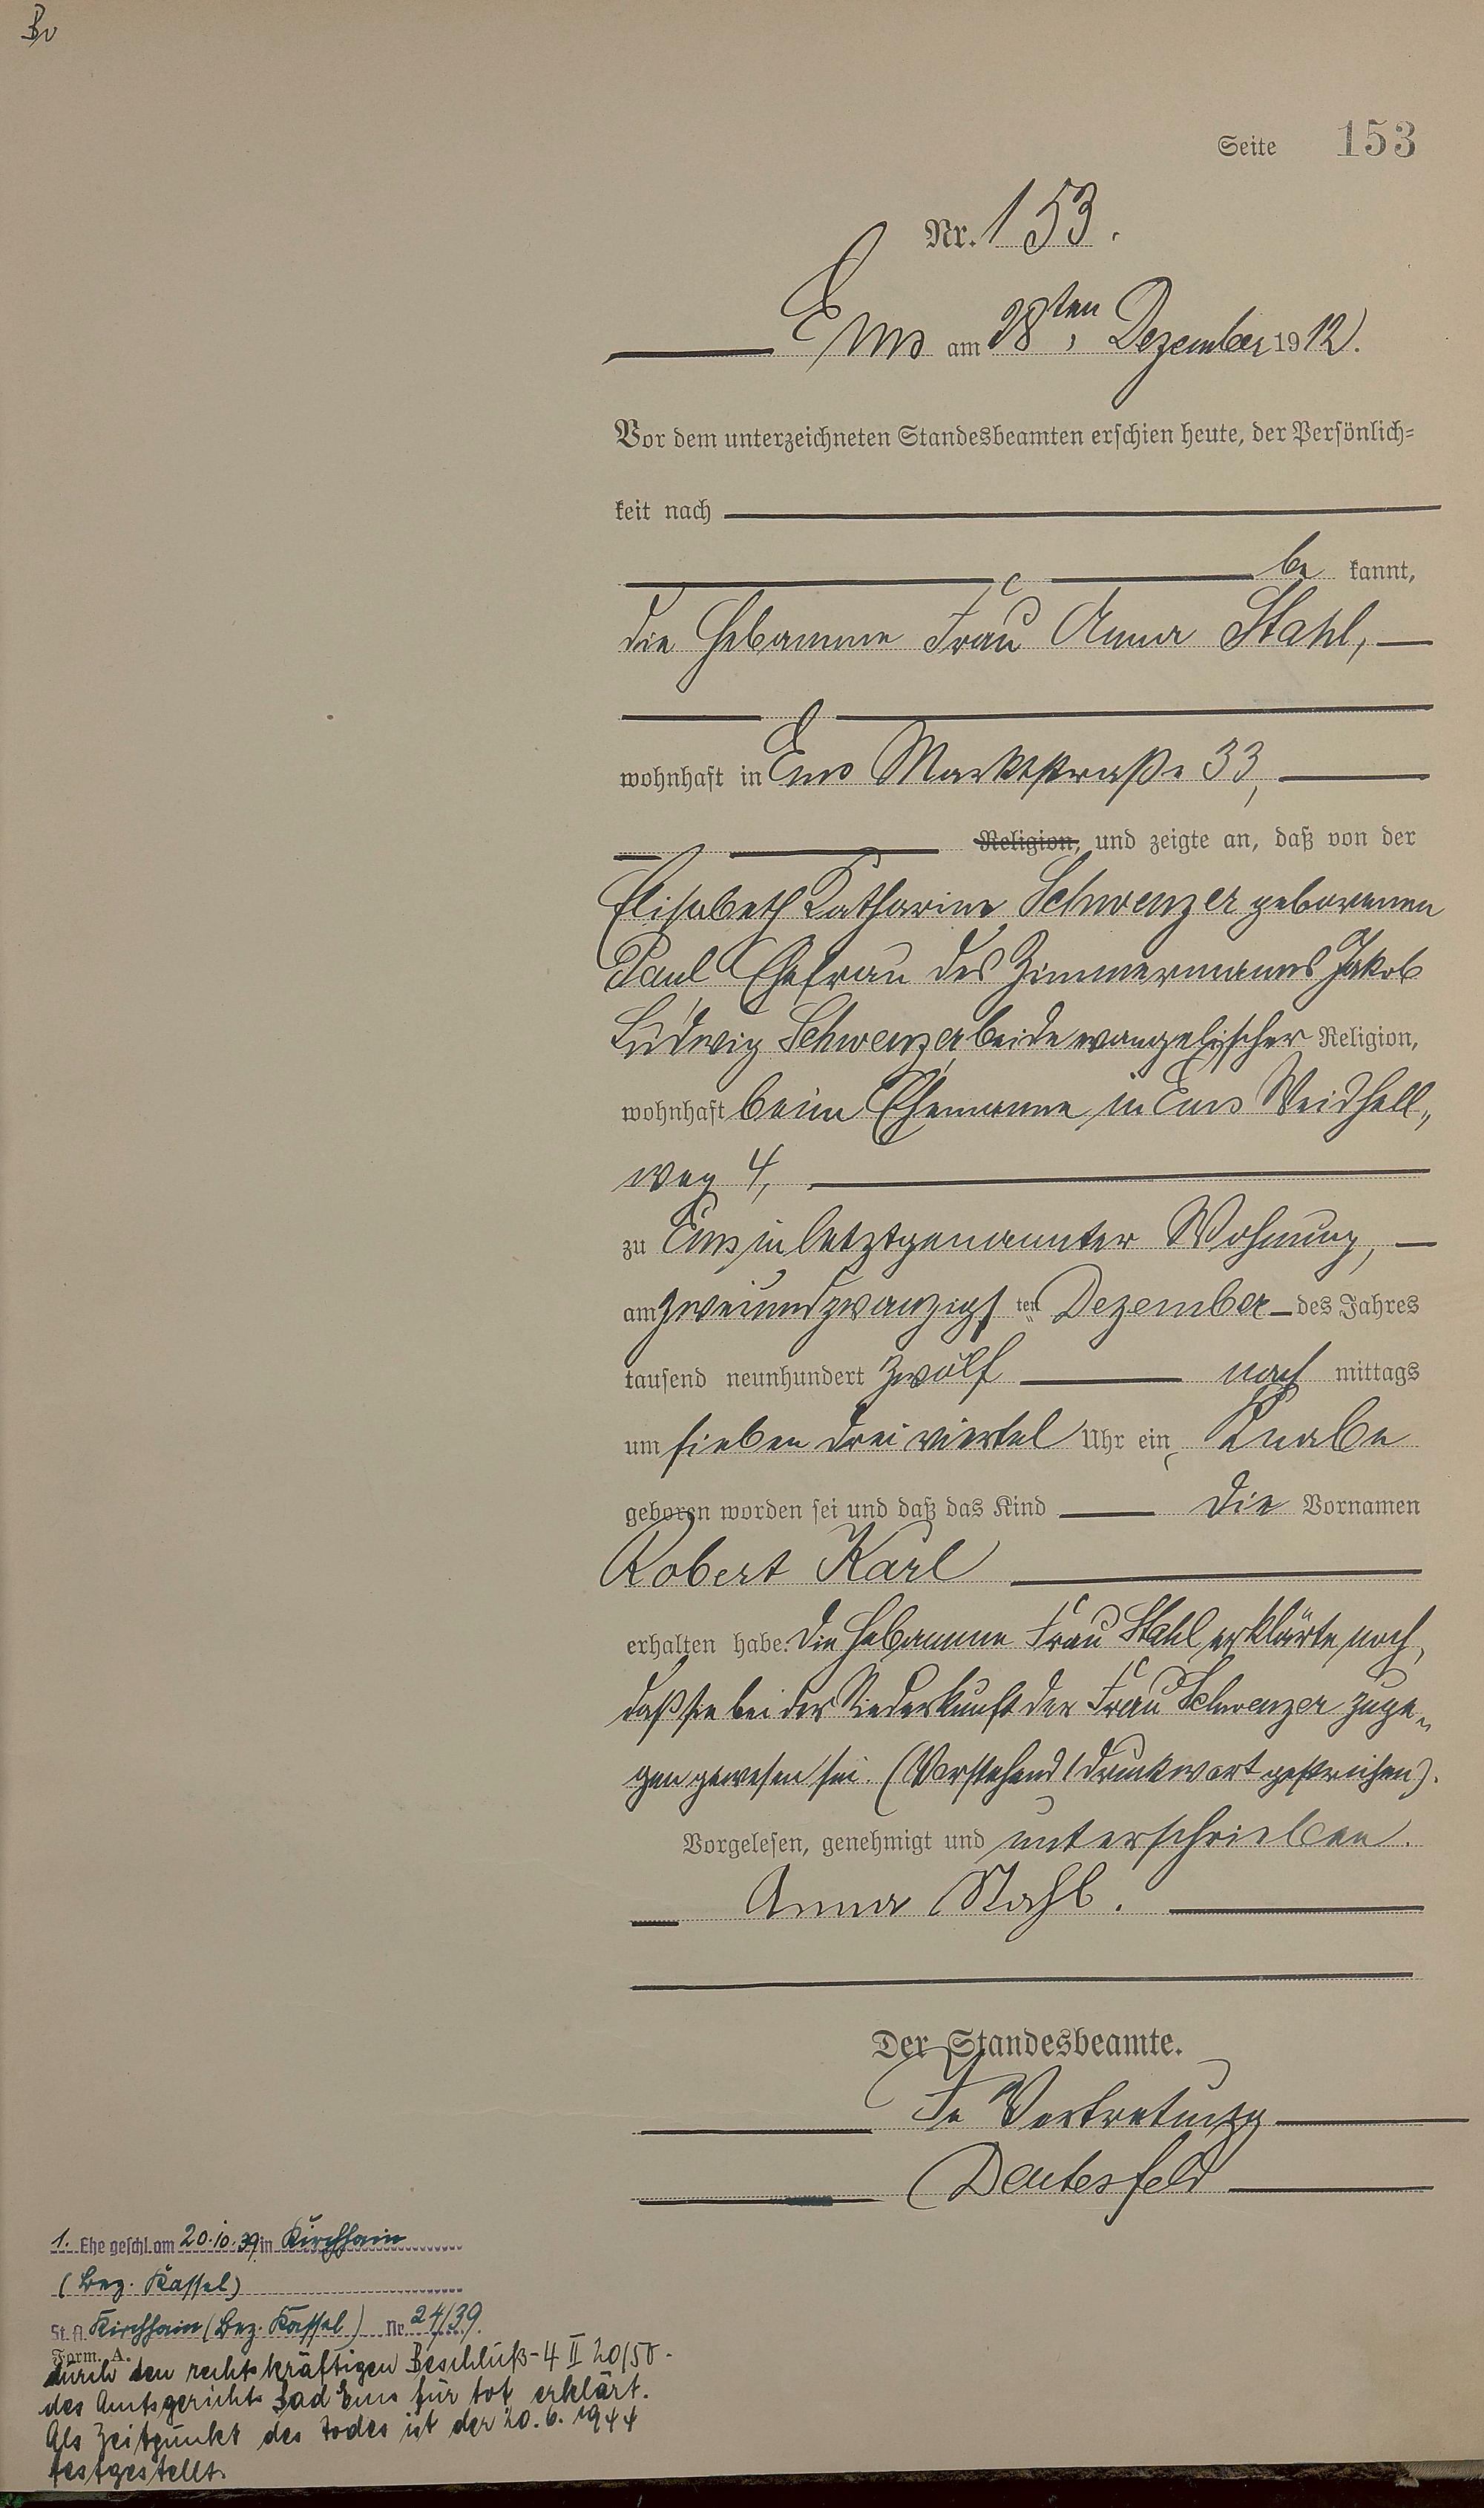 Bv
Seite 153
Nr. 153.
Ems am 28ten Dezember 1912.
Vor dem unterzeichneten Standesbeamten erschien heute, der Persönlich-
keit nach
be kannt,
die Hebamme Frau Anna Stahl,
wohnhaft in Ems Marktstraße 33,
Religion, und zeigte an, daß von der
Elisabeth Katharine Schwenzer geborenen
Paul Ehefrau des Zimmermanns Jakob
Ludwig Schwenzer, beide evangelischer Religion,
wohnhaft beim Ehemanne in Ems Weidhell-
weg 4,
zu Ems in letztgenannter Wohnung,
am zweiundzwanzigsten Dezember des Jahres
tausend neunhundert zwölf nach mittags
um sieben drei viertel Uhr ein Knabe
geboren worden sei und daß das Kind die Vornamen
Robert Karl
erhalten habe. Die Hebamme Frau Stahl erklärte noch,
daß sie bei der Niederkunft der Frau Schwenzer zuge-
gen gewesen sei. (Vorstehend 1 Druckwort gestrichen).
Vorgelesen, genehmigt und unterschrieben.
Anna Stahl.
Der Standesbeamte.
In Vertretung
Deutesfeld
1. Ehe geschl. am 20.10.39 in Kirchhain
(Bez. Kassel)
St. A. Kirchhain (Bez. Kassel) Nr. 24/39.
Form. A.
durch den rechtskräftigen Beschluß - 4 II 20/50 -
des Amtsgerichts Bad Ems für tot erklärt.
Als Zeitpunkt des Todes ist der 20.6.1944
festgestellt.